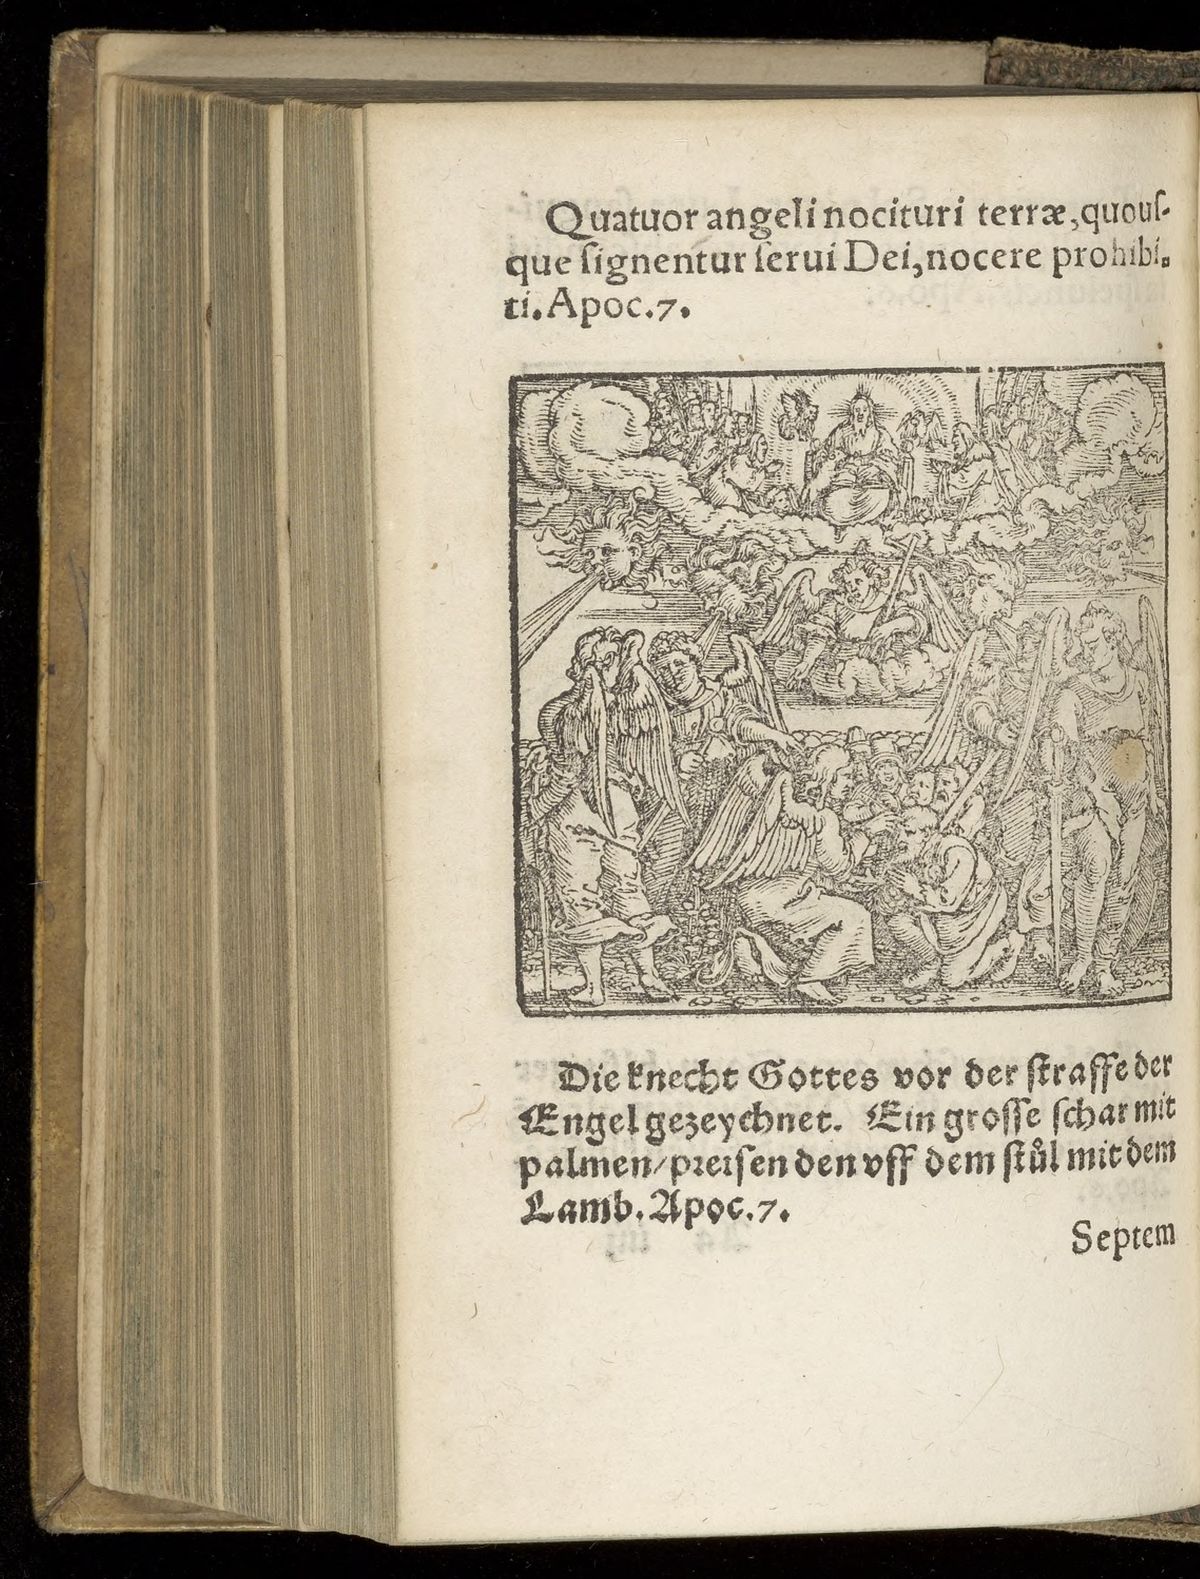 Quatuor angeli nocituri terræ, quouſ-
que ſignentur ſerui Dei, nocere prohibi-
ti. Apoc.7.
Die knecht Gottes vor der ſtraffe der
Engel gezeychnet. Ein groſſe ſchar mit
palmen/preiſen den vff dem ſtůl mit dem
Lamb. Apoc.7.
Septem